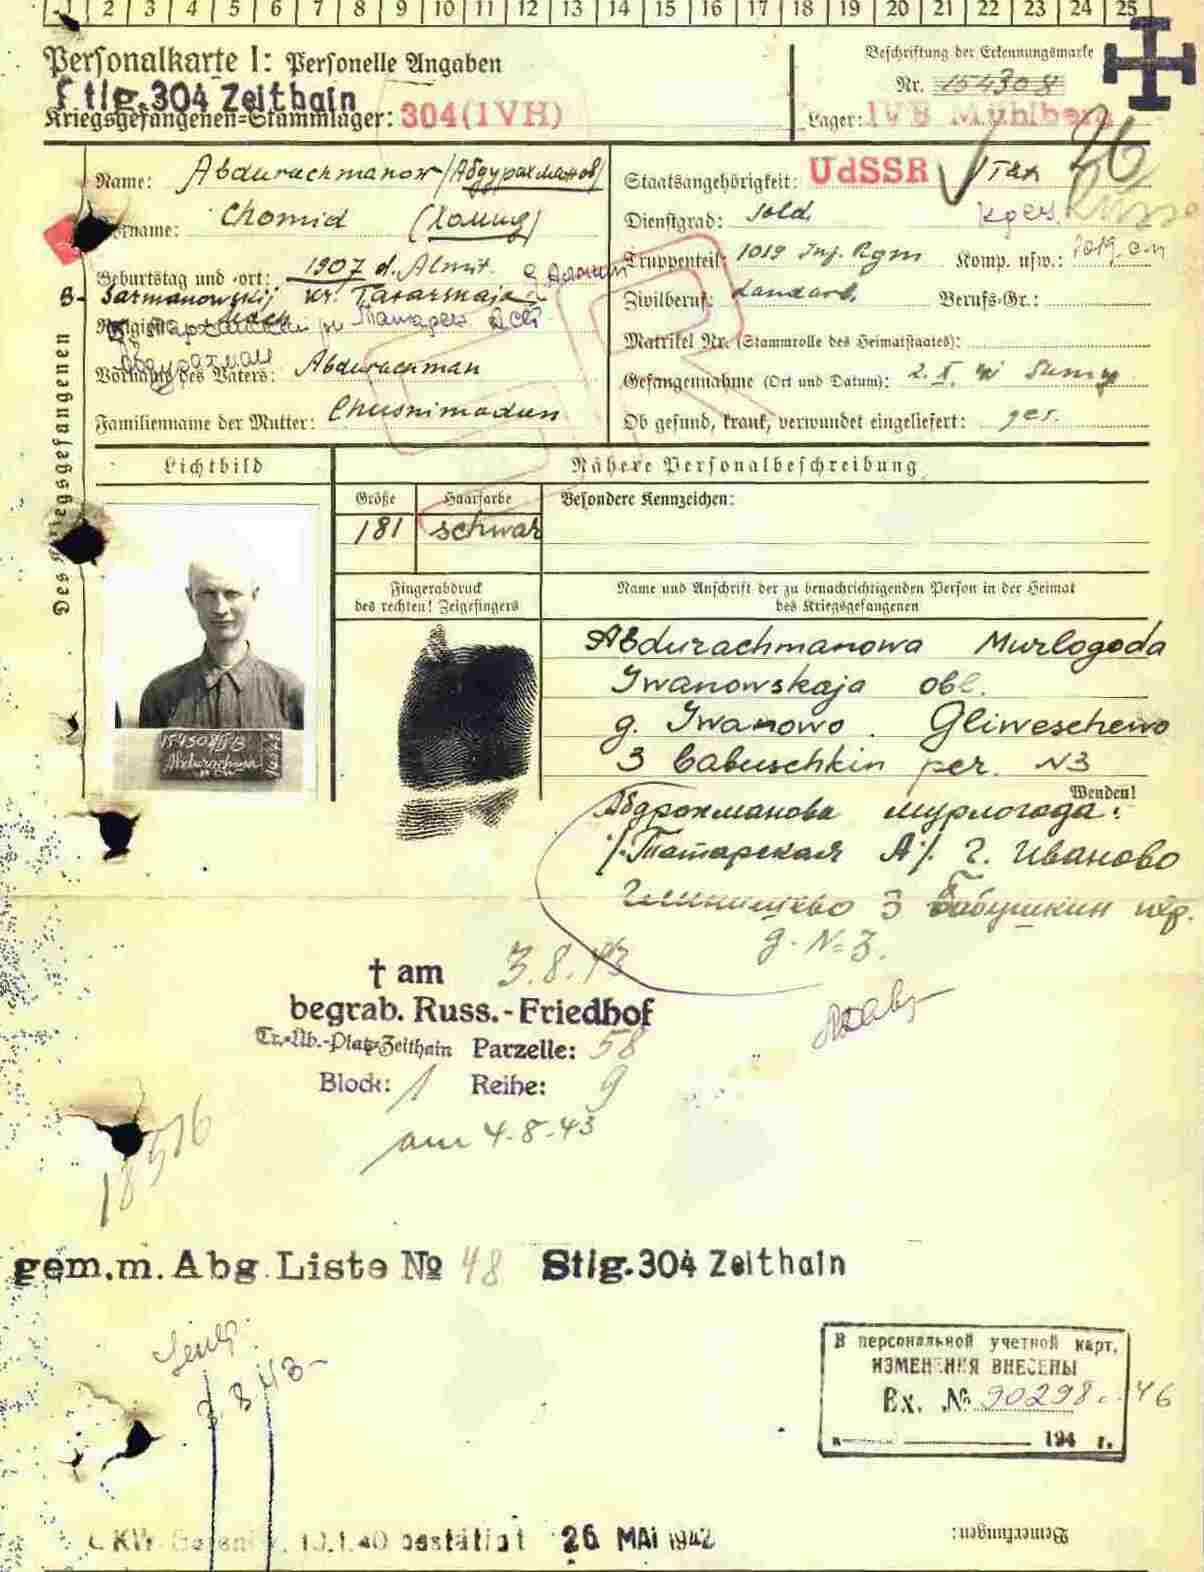 1 2 3 4 5 6 7 8 9 10 11 12 13 14 15 16 17 18 19 20 21 22 23 24 25
Personalkarte I: Personelle Angaben
Stlg. 304 Zeithain
Kriegsgefangenen=Stammlager: 304 (IVH)
Beschriftung der Erkennungsmarke
Nr. 154308
Lager: IVB Mühlberg
Des Kriegsgefangenen
Name: Abdurachmanow /Абдурахманов/
Vorname: Chomid (Хомид)
Geburtstag und -ort: 1907 d. Almit.
Sarmanowskij Tatarskaja
Religion:
Абдурахман
Vorname des Vaters: Abdurachman
Familienname der Mutter: Chusnimadun
Staatsangehörigkeit: UdSSR
26
Dienstgrad: Sold.
Truppenteil: 1019 Inf. Rgm Komp. usw.: 1019
Zivilberuf: Landarb. Berufs-Gr.:
Matrikel Nr. (Stammrolle des Heimatstaates):
Gefangennahme (Ort und Datum): 2. X. Sumy
Ob gesund, krank, verwundet eingeliefert: ges.
Lichtbild
Nähere Personalbeschreibung
Größe Haarfarbe Besondere Kennzeichen:
181 schwar
Fingerabdruck
des rechten! Zeigefingers
Name und Anschrift der zu benachrichtigenden Person in der Heimat
des Kriegsgefangenen
Abdurachmanowa Murlogoda
Iwanowskaja obl.
g. Iwanowo. Gliweschewo
3 babuschkin per. N3
Wenden!
Абдрахманова мурлогода
/Татарская А/. г. Иваново
3 Бабушкин пер.
д. N=3.
† am 3.8.43
begrab. Russ.-Friedhof
Tr.-Üb.-Platz-Zeithain Parzelle: 58
Block: 1 Reihe: 9
am 4-8-43
18516
gem. m. Abg. Liste № 48 Stlg. 304 Zeithain
3.8.43-
В персональной учетной карт.
ИЗМЕНЕНИЯ ВНЕСЕНЫ
Вх. № 90298 46
194 г.
10.1.40 bestätigt 26 MAI 1942
Bemerkungen: